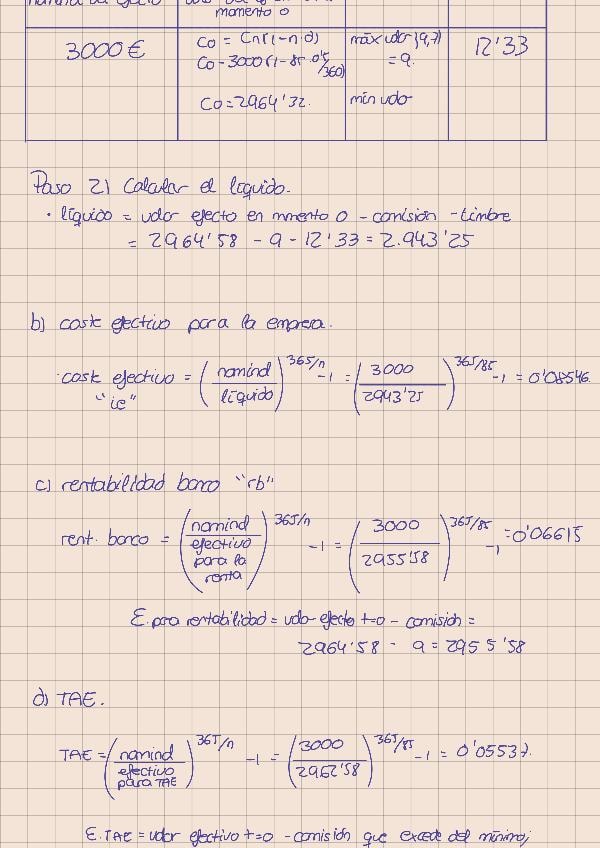 momento 0
3000€
Co = Cn(1-n·d)
máx valor (9,7)
12'33
Co = 3000(1-85·0'5/360)
= 9.
Co = 2964'32.
min valor
Paso 2) Calcular el líquido.
· líquido = valor efecto en mmento 0 - comisión - timbre
= 2964'58 - 9 - 12'33 = 2.943'25
b) coste efectivo para la empresa.
· coste efectivo = (nominal / líquido)^365/n - 1 = (3000 / 2943'25)^365/85 - 1 = 0'08546.
"ie"
c) rentabilidad banco "rb"
rent. banco = (nominal / efectivo para la renta)^365/n - 1 = (3000 / 2955'58)^365/85 - 1 = 0'06615
E. para rentabilidad = valor efecto t=0 - comisión =
2964'58 - 9 = 2955'58
d) TAE.
TAE = (nominal / efectivo para TAE)^365/n - 1 = (3000 / 2962'58)^365/85 - 1 = 0'05537.
E.TAE = valor efectivo t=0 - comisión que excede del mínimo;